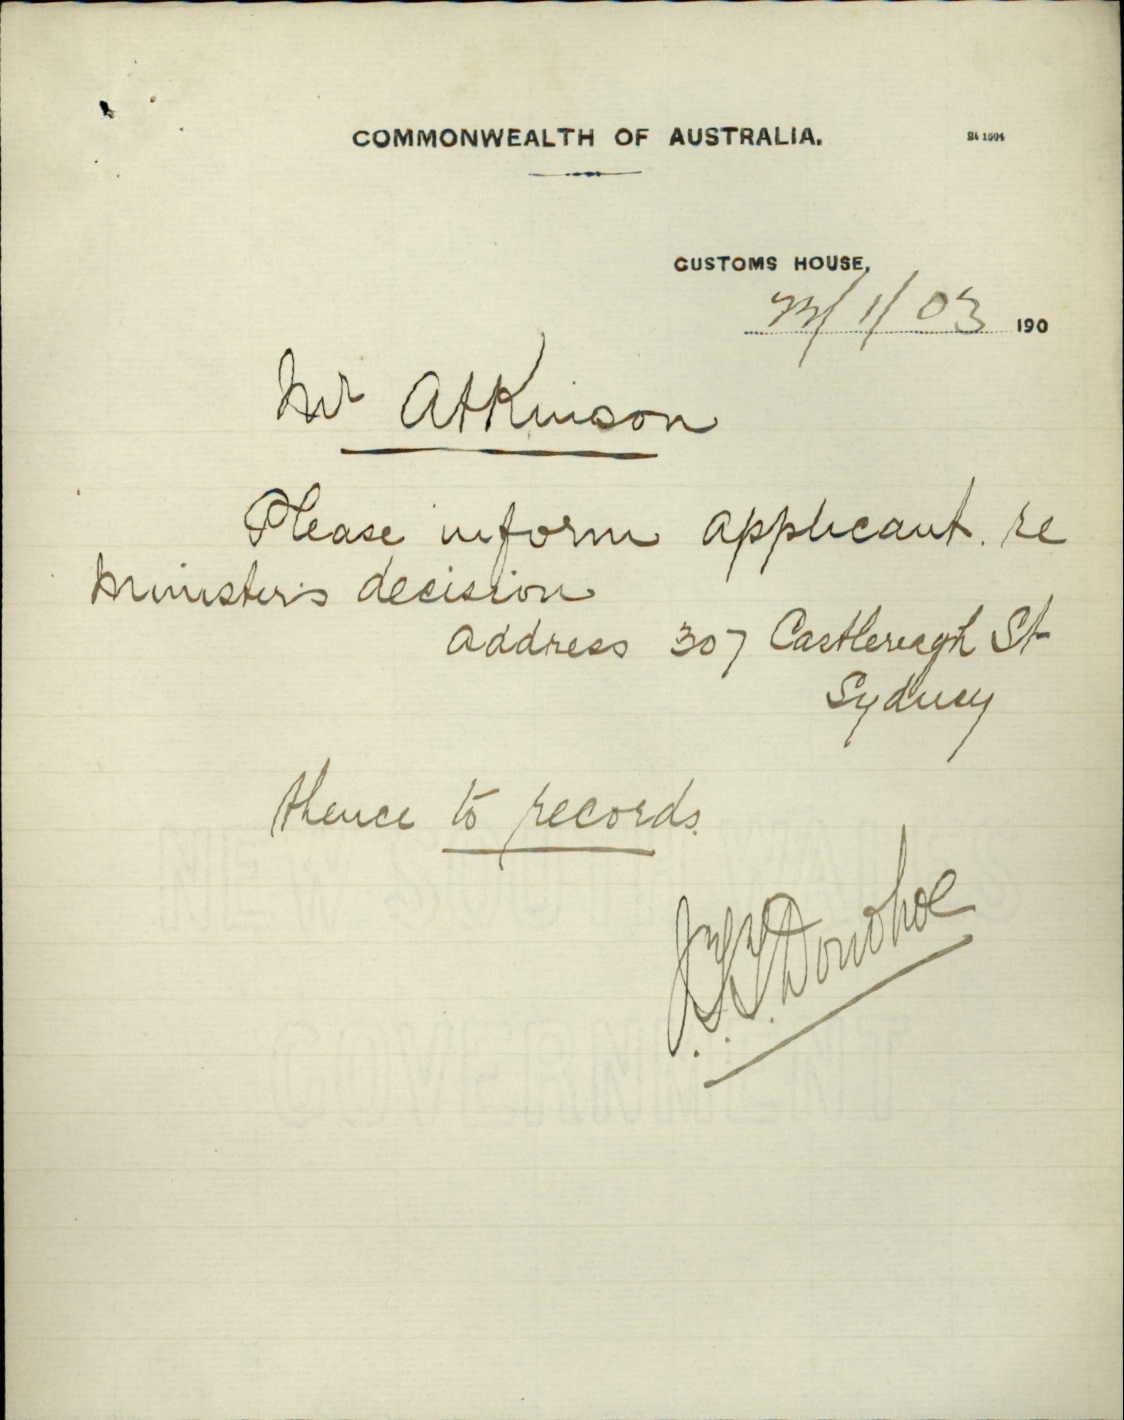 COMMONWEALTH OF AUSTRALIA.
CUSTOMS HOUSE,
23/1/03 190
Mr Atkinson
Please inform applicant. re
Minister's decision
address 307 Castlereagh St
Sydney
thence to records.
Donohoe
NEW SOUTH WALES
GOVERNMENT